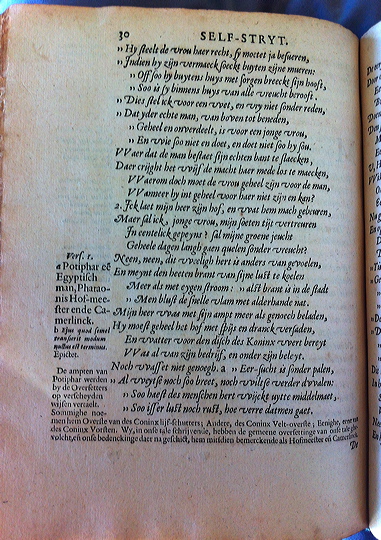 30 SELF-STRYT.
„ Hy steelt de vrou haer recht, sy moetet ja besueren,
„ Indien hy zijn vermaeck soeckt buyten zijne mueren:
„ Off soo hy buytens huys met sorgen breeckt sijn hooft,
„ Soo is sy binnens huys van alle vreucht berooft.
„ Dies stel ick voor een wet, en vry niet sonder reden,
„ Dat yder echte man, van boven tot beneden,
„ Geheel en onverdeelt, is voor een jonge vrou,
„ En wie soo niet en doet, en doet niet soo hy sou.
VVaer dat de man bestaet sijn echten bant te slaecken,
Daer crijght het wijf de macht haer mede los te maecken,
VVaerom doch moet de vrou geheel zijn voor de man,
VVanneer hy int geheel voor haer niet zijn en kan?
2. Ick laet mijn heer zijn hof, en wat hem mach gebeuren,
Maer sal ick, jonge vrou, mijn soeten tijt vertreuren
In eentelick gepeyns? sal mijne groene jeucht
Geheele dagen langh gaen quelen sonder vreucht?
Neen, neen, dit weeligh hert is anders van gevoelen,
En meynt den heeten brant van sijne lust te koelen
Meer als met eygen stroom: „ alst brant is in de stadt
„ Men blust de snelle vlam met alderhande nat.
Mijn heer wae met sijn ampt meer als genoech beladen,
Hy moest geheel het hof met spijs en dranck versaden,
En watter voor den disch des Koninx weert bereyt
VVas al van zijn bedrijf, en onder zijn beleyt.
Noch wast er niet genoegh. a „ Eer-sucht is sonder palen,
„ Al weytse noch soo breet, noch wiltse verder dwalen:
„ Soo haest des menschen hert wijckt uytte middelmaet,
„ Soo isser lust noch rust, hoe verre datmen gaet.
Vers. 1.
a Potiphar eẽ
Egyptisch
man, Pharao-
nis Hof-mee-
ster ende Ca-
merlinck.
b Ejus quod semel
transierit modum
nullus est terminus.
Epictet.
De ampten van
Potiphar werden
by de Oversetters
op verscheyden
wijsen vertaelt.
Sommighe noe-
men hem Overste van des Coninx lijf-schutters; Andere, des Coninx Velt-overste; Eenighe, eene van
des Coninx Vorsten. Wy, in onse tale schrijvende, hebben de gemeene oversettinge van onse tale ghe-
volcht, en onse bedenckinge daer na geschickt, hem mitsdien bemerckende als Hofmeester en Camerlinck.
De